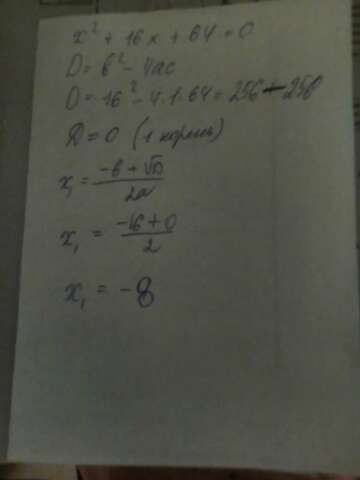 x² + 16x + 64 = 0
D = b² - 4ac
D = 16² - 4·1·64 = 256 - 256
D = 0 (1 корень)
x₁ = (-b + √D)/2a
x₁ = (-16 + 0)/2
x₁ = -8